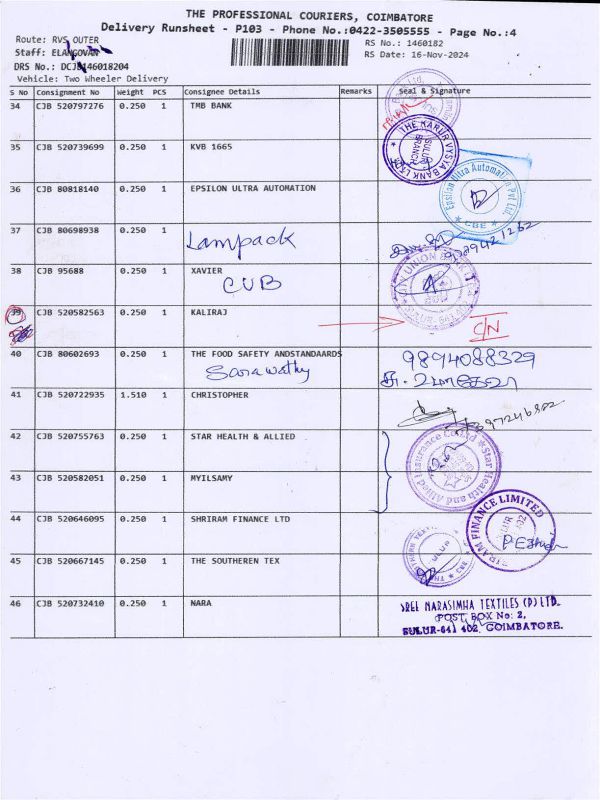 THE PROFESSIONAL COURIERS, COIMBATORE
Delivery Runsheet - P103 - Phone No.:0422-3505555 - Page No.:4
Route: RVS OUTER
RS No.: 1460182
Staff: ELANGOVAN
RS Date: 16-Nov-2024
DRS No.: DCJB146018204
Vehicle: Two Wheeler Delivery
S No Consignment No Weight PCS Consignee Details Remarks Seal & Signature
34 CJB 520797276 0.250 1 TMB BANK
35 CJB 520739699 0.250 1 KVB 1665
THE KARUR VYSYA BANK LTD
SULUR BRANCH
36 CJB 80818140 0.250 1 EPSILON ULTRA AUTOMATION
Epsilon Ultra Automation Pvt Ltd.
CBE
37 CJB 80698938 0.250 1 Lampack
38 CJB 95688 0.250 1 XAVIER
CUB
39 CJB 520582563 0.250 1 KALIRAJ
C/N
40 CJB 80602693 0.250 1 THE FOOD SAFETY ANDSTANDAARDS
Sarawathy
9894088329
41 CJB 520722935 1.510 1 CHRISTOPHER
42 CJB 520755763 0.250 1 STAR HEALTH & ALLIED
Star Health and Allied Insurance Co Ltd
43 CJB 520582051 0.250 1 MYILSAMY
44 CJB 520646095 0.250 1 SHRIRAM FINANCE LTD
FINANCE LIMITED
45 CJB 520667145 0.250 1 THE SOUTHEREN TEX
46 CJB 520732410 0.250 1 NARA
SREE NARASIMHA TEXTILES (P) LTD.
POST BOX No: 2,
SULUR-641 402, COIMBATORE.